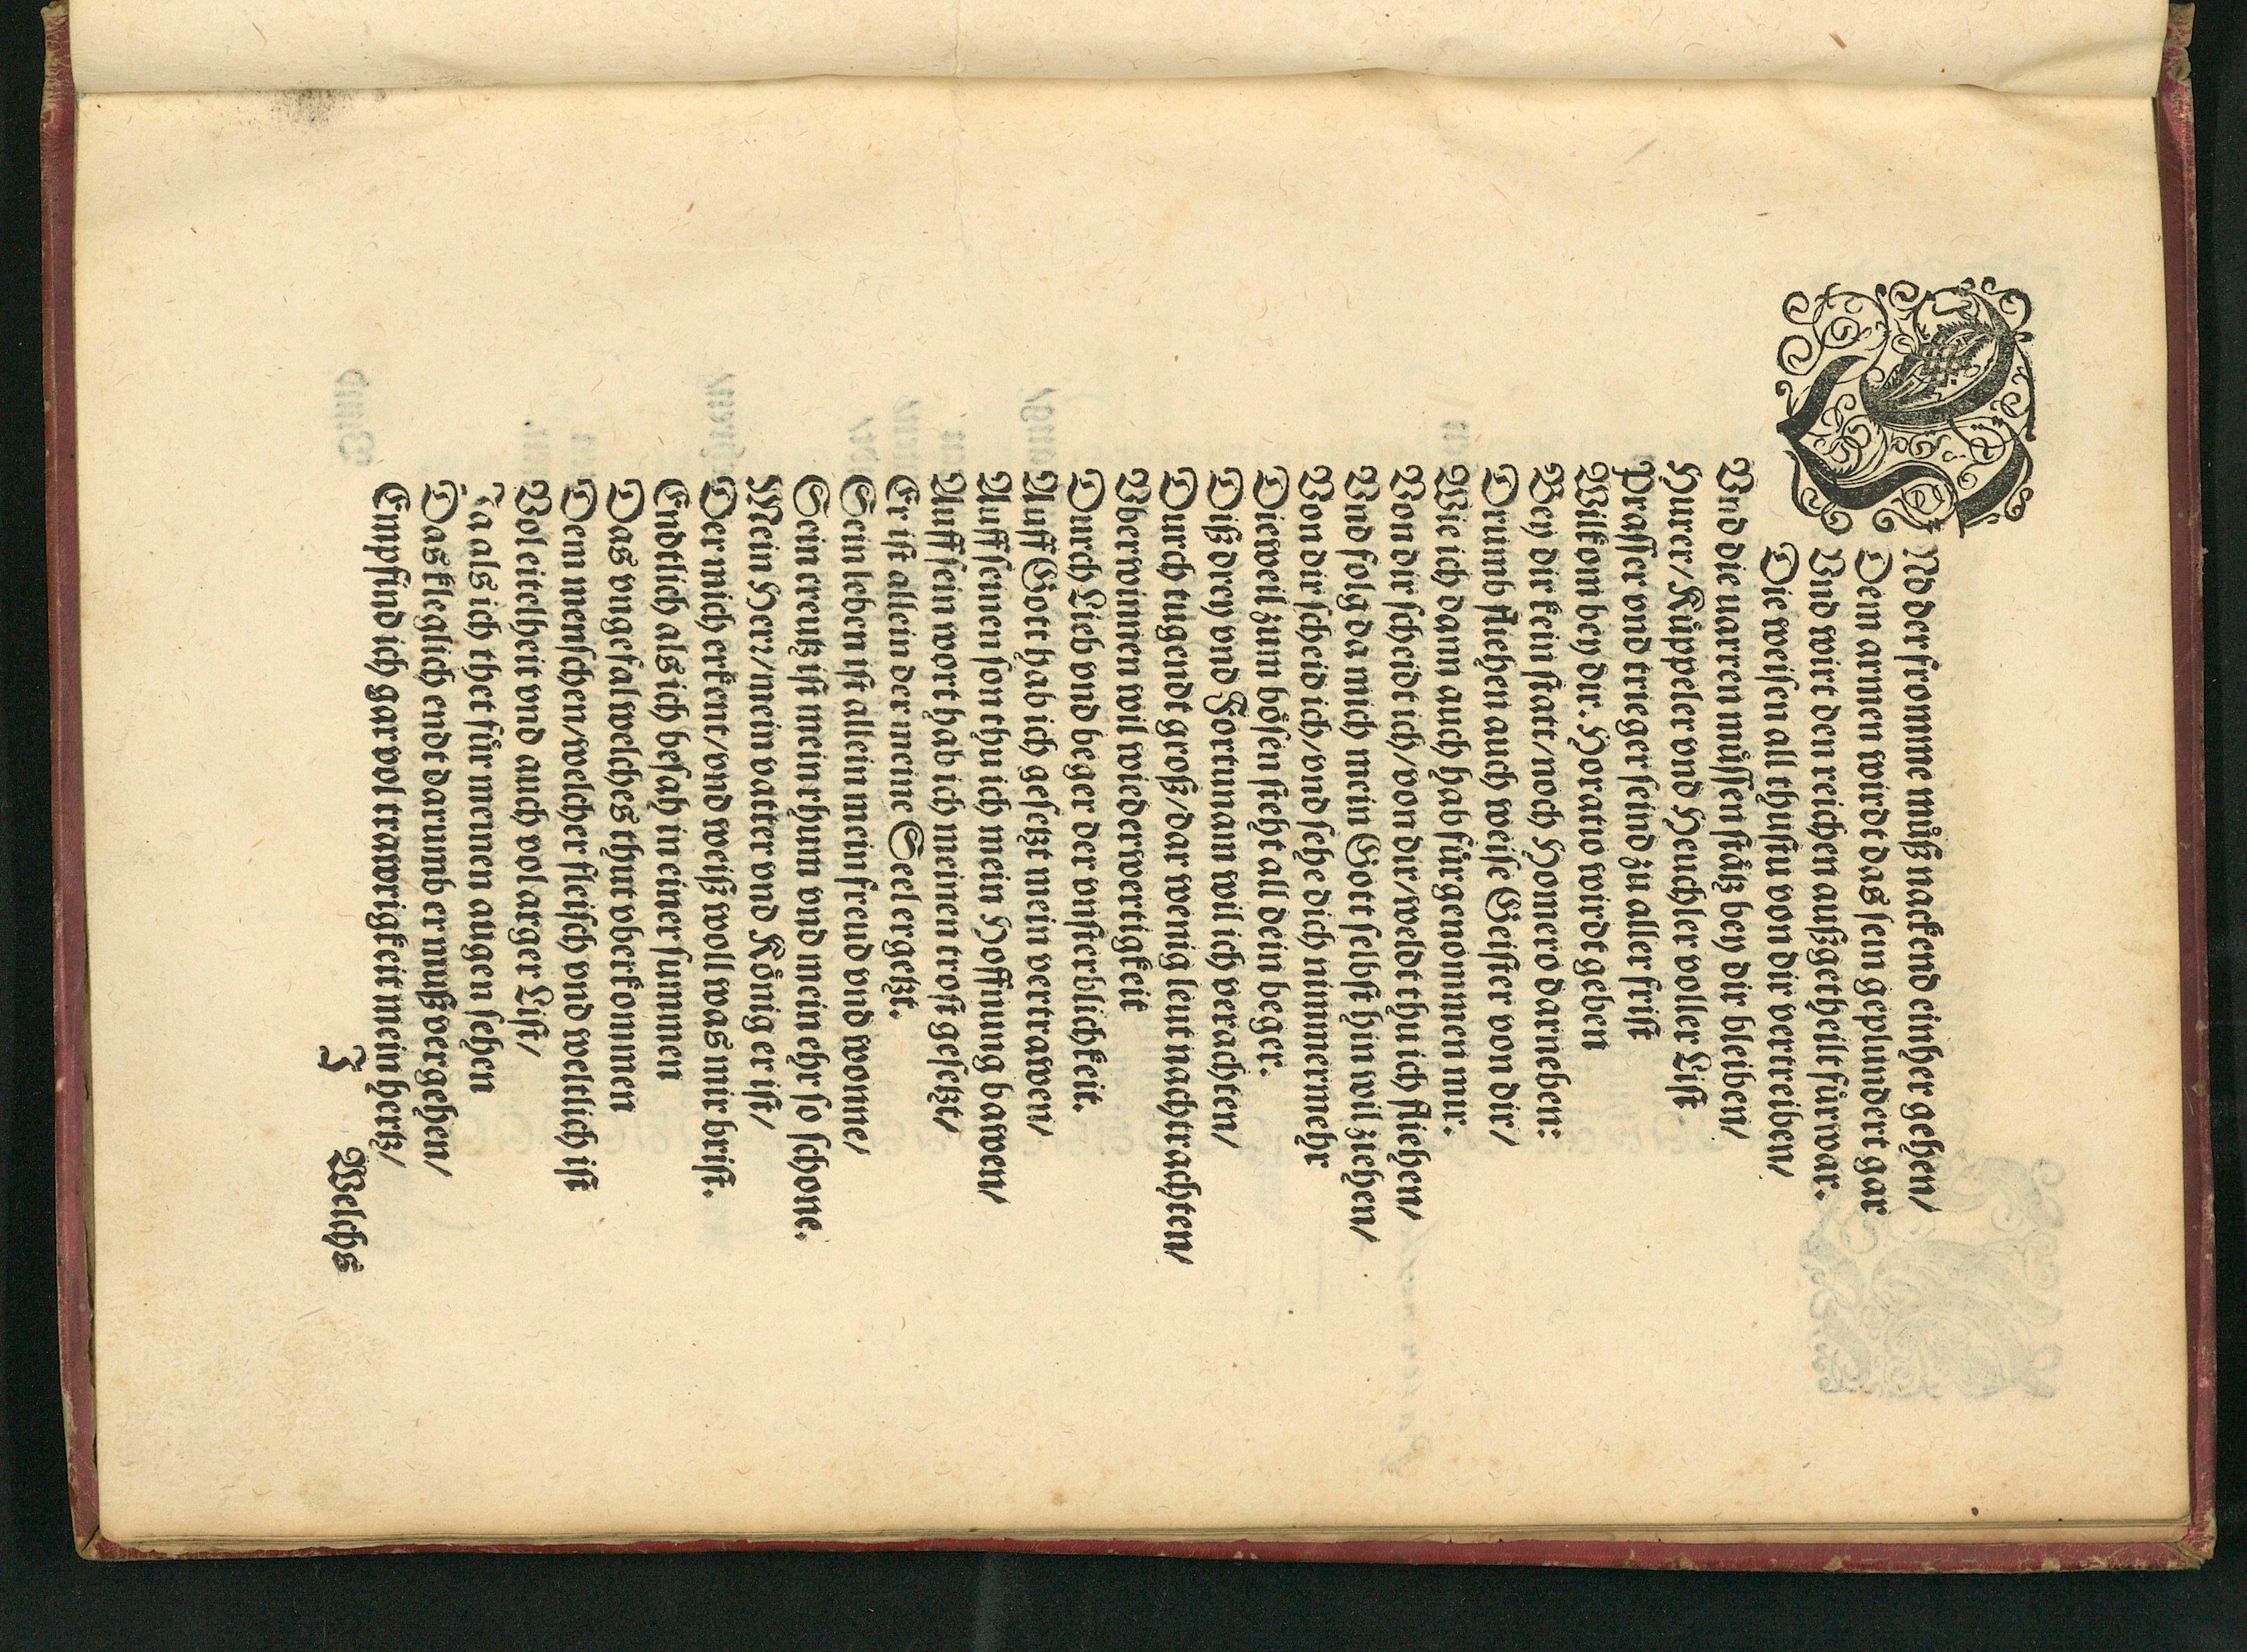 VNd der fromme můß nackend einher gehen/
Dem armen wirdt das sein geplundert gar
Vnd wirt den reichen außgetheilt fürwar.
Die weisen all thustu von dir vertreiben/
Vnd die narren můssen stätz bey dir bleiben/
Hurer/ Kůppeler vnd Heuchler voller List
Prasser vnd trieger seind zu aller frist
Wilkom bey dir. Horatio wirdt geben
Bey dir kein statt/ noch Homero darneben:
Drumb fliehen auch weise Geister von dir/
Wie ich dann auch hab fůrgenommen mir.
Von dir scheidt ich/ von dir/ weldt thu ich fliehen/
Vnd folg da mich mein Gott selbst hin wil ziehen/
Von dir scheid ich/ vnd sehe dich nimmermehr
Dieweil zum bösen sieht all dein beger.
Diß drey vnd Fortunam wil ich verachten/
Durch tugendt groß/ dar wenig leut nach trachten/
Vberwinnen wil wiederwertigkeit
Durch Lieb vnd beger der vnsterblichkeit.
Auff Gott hab ich gesetzt mein vertrawen/
Auff seinen son thu ich mein Hoffnung bawen/
Auff sein wort hab ich meinen trost gesetzt/
Er ist allein der meine Seel ergetzt.
Sein leben ist allein mein freud vnd wonne/
Sein creutz ist mein rhum vnd mein ehr so schone.
Mein Herr/ mein vatter vnd König er ist/
Der mich erkent/ vnd weiß woll was mir brist.
Endtlich als ich besah in einer summen
Das vngefal welches thut vberkommen
Dem menschen/ welcher fleisch vnd weltlich ist
Vol eitelheit vnd auch vol arger List/
Ja als ich thet fůr meinen augen sehen
Das kleglich endt darumb er muß vergehen/
Empfind ich gar vol trawrigkeit mein hertz/
I Welchs